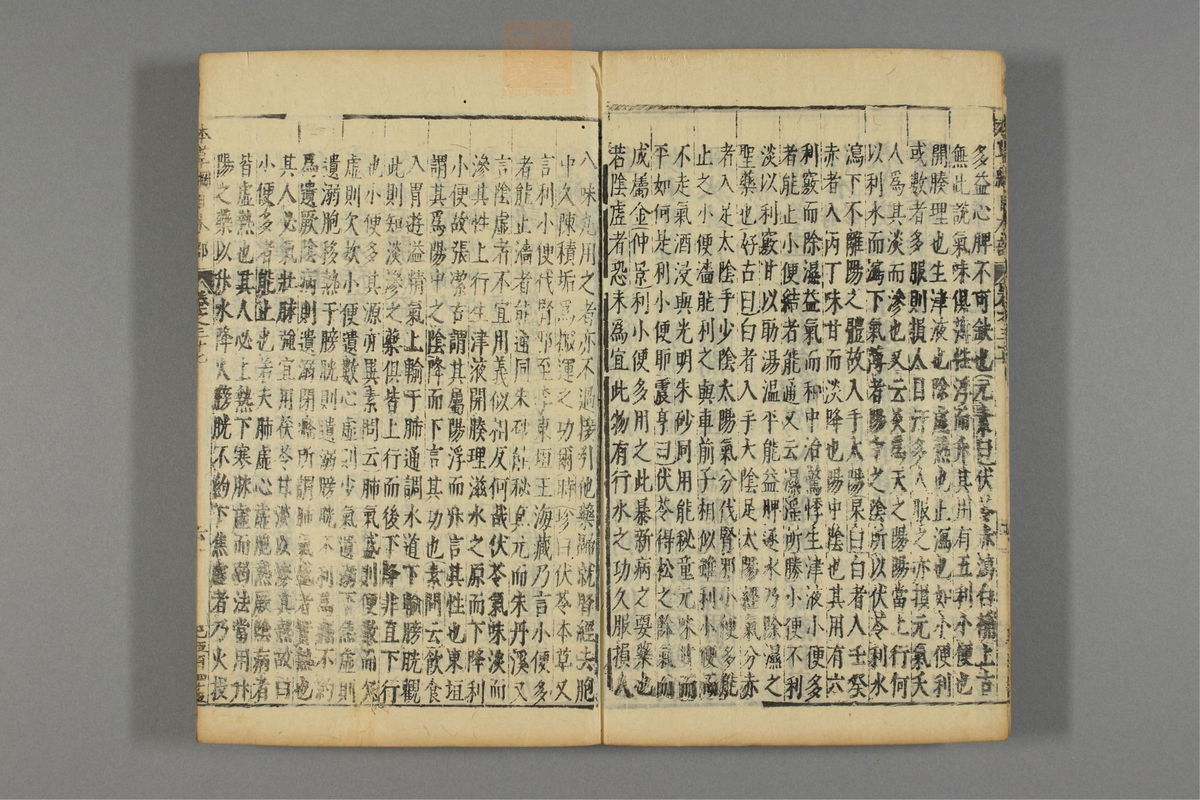 多益心脾不可缺也元素曰伏苓赤瀉白補上古
無此說氣味俱薄性浮而升其用有五利小便也
開腠理也生津液也除虛熱也止瀉也如小便利
或數者多服則損人目汗多人服之亦損元氣夭
人爲其淡而滲也又云淡爲天之陽陽當上行何
以利水而瀉下氣薄者陽中之陰所以伏苓利水
瀉下不離陽之體故入手太陽杲曰白者入壬癸
赤者入丙丁味甘而淡降也陽中陰也其用有六
利竅而除濕益氣而和中治驚悸生津液小便多
者能止小便結者能通又云濕淫所勝小便不利
淡以利竅甘以助陽温平能益脾逐水乃除濕之
聖藥也好古曰白者入手太陰足太陽經氣分赤
者入足太陰手少陰太陽氣分伐腎邪小便多能
止之小便濇能利之與車前子相似雖利小便而
不走氣酒浸與光明朱砂同用能秘童元味甘而
平如何是利小便耶震亨曰伏苓得松之餘氣而
成屬金仲景利小便多用之此暴新病之要藥也
若陰虛者恐未為宜此物有行水之功久服損人
八味丸用之者亦不過接引他藥歸就腎經去胞
中久陳積垢爲搬運之功爾時珍曰伏苓本草又
言利小便伐腎邪至李東垣王海藏乃言小便多
者能止濇者能通同朱砂能秘眞元而朱丹溪又
言陰虛者不宜用義似相反何哉伏苓氣味淡而
滲其性上行生津液開腠理滋水之原而下降利
小便故張潔古謂其屬陽浮而升言其性也東垣
謂其爲陽中之陰降而下言其功也素問云飲食
入胃遊溢精氣上輸于肺通調水道下輸膀胱觀
此則知淡滲之藥俱皆上行而後下降非直下行
也小便多其源亦異素問云肺氣盛則便數而欠
虛則欠欬小便遺數心虛則少氣遺溺下焦虛則
遺溺胞移熱于膀胱則遺溺膀胱不利爲癃不約
爲遺厥陰病則遺溺閉癃所謂肺氣盛者實熱也
其人必氣壯脉強宜用茯苓甘淡以滲其熱故曰
小便多者能止也若夫肺虛心虛胞熱厥陰病者
皆虛熱也其人必上熱下寒脉虛而弱法當用升
陽之藥以升水降火膀胱不約下焦虛者乃火投